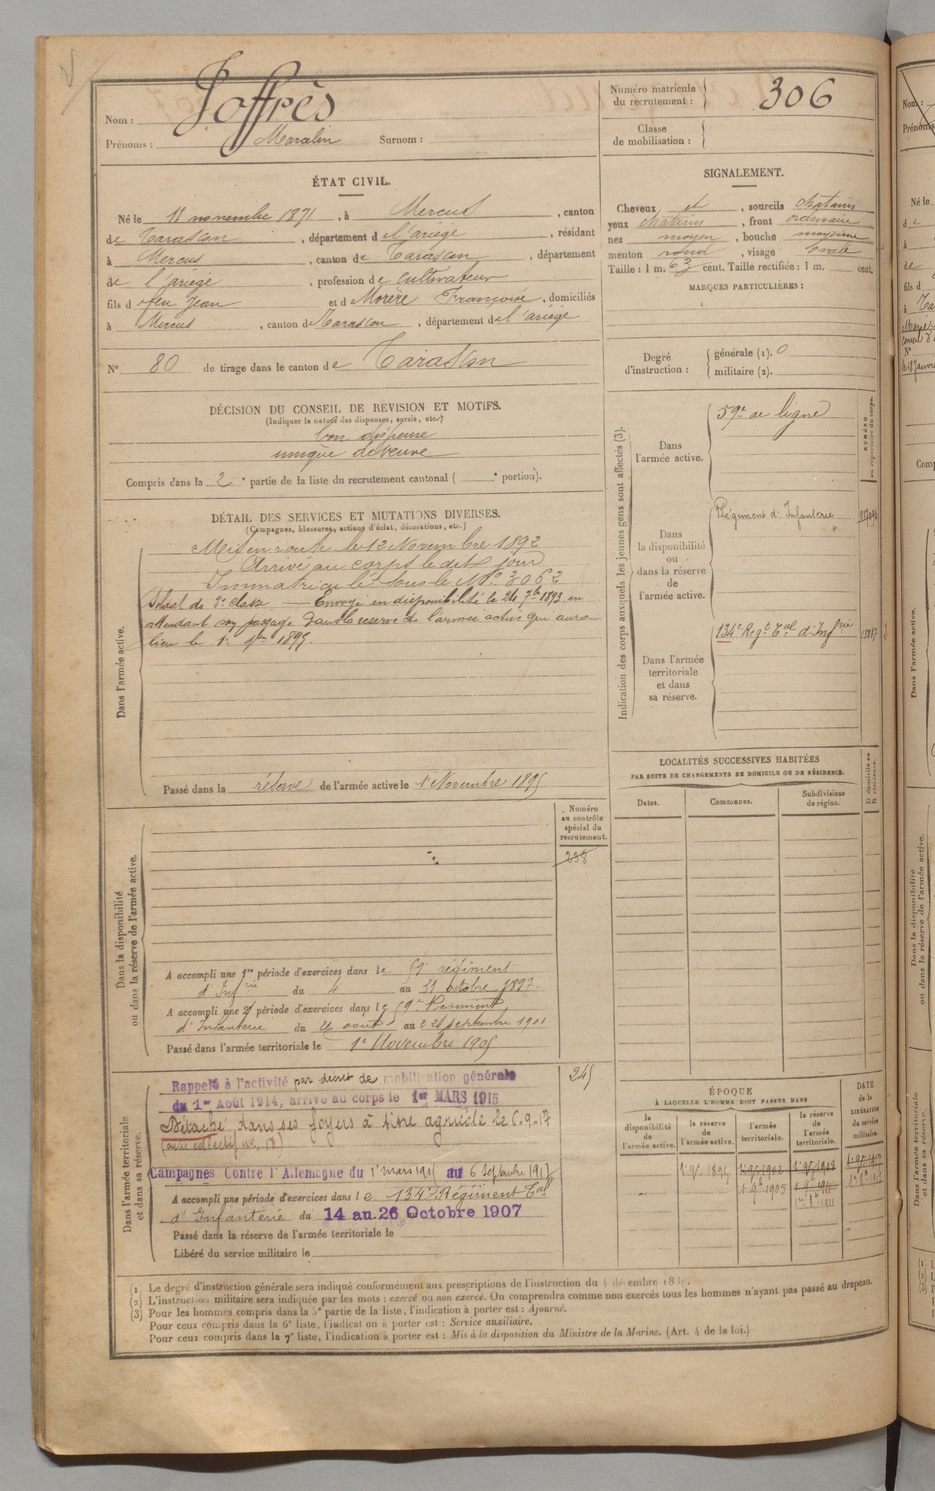 Nom : Joffrès
Prénoms : Marcelin Surnom :
Numéro matricule du recrutement : 306
Classe de mobilisation :
ÉTAT CIVIL.
Né le 11 novembre 1871, à Mercus, canton
de Tarascon, département de l'ariège, résidant
à Mercus, canton de Tarascon, département
de l'ariège, profession de cultivateur
fils de feu Jean et de Morère Françoise, domiciliés
à Mercus, canton de Tarascon, département de l'ariège
N° 80 de tirage dans le canton de Tarascon
SIGNALEMENT.
Cheveux et, sourcils chatains
yeux chatains, front ordinaire
nez moyen, bouche moyenne
menton rond, visage ovale
Taille : 1 m. 63 cent. Taille rectifiée : 1 m. cent.
MARQUES PARTICULIÈRES :
Degré d'instruction : générale (1). 0
militaire (2).
DÉCISION DU CONSEIL DE REVISION ET MOTIFS.
(Indiquer la nature des dispenses, sursis, etc.)
bon dispense
unique de veuve
Compris dans la 2e partie de la liste du recrutement cantonal ( e portion).
DÉTAIL DES SERVICES ET MUTATIONS DIVERSES.
(Campagnes, blessures, actions d'éclat, décorations, etc.)
Dans l'armée active.
Mis en route le 12 Novembre 1892
Arrivé au corps le dit jour
Immatriculé sous le No 3062
Soldat de 2e classe — Envoyé en disponibilité le 24 7bre 1893 en
attendant son passage dans la réserve de l'armée active qui aura
lieu le 1er 9bre 1895
Passé dans la réserve de l'armée active le 1er Novembre 1895
Indication des corps auxquels les jeunes gens sont affectés (3).
Dans l'armée active.
59e de ligne
Dans la disponibilité ou dans la réserve de l'armée active.
Régiment d'Infanterie
Dans l'armée territoriale et dans sa réserve.
134e Regt Tal d'Infrie
LOCALITÉS SUCCESSIVES HABITÉES
PAR SUITE DE CHANGEMENTS DE DOMICILE OU DE RÉSIDENCE.
Dates. Communes. Subdivisions de région. D. domicile ou R. résidence.
Dans la disponibilité ou dans la réserve de l'armée active.
Numéro au contrôle spécial du recrutement.
238
A accompli une 1re période d'exercices dans le 59e régiment
d'Infrie du 4 au 31 octobre 1897.
A accompli une 2e période d'exercices dans le 59e Régiment
d'Infanterie du 26 aout au 22 septembre 1901
Passé dans l'armée territoriale le 1er Novembre 1905
Dans l'armée territoriale et dans sa réserve.
245
Rappelé à l'activité par décret de mobilisation générale
du 1er Août 1914, arrive au corps le 1er MARS 1915
Détaché dans ses foyers à titre agricole le 6.9.17
Campagnes Contre l'Allemagne du 1er mars 1915 au 6 Septembre 1917
A accompli une période d'exercices dans le 134e Régiment Tal
d'Infanterie du 14 au 26 Octobre 1907
Passé dans la réserve de l'armée territoriale le
Libéré du service militaire le
ÉPOQUE
À LAQUELLE L'HOMME DOIT PASSER DANS
la disponibilité de l'armée active. la réserve de l'armée active. l'armée territoriale. la réserve de l'armée territoriale.
DATE de la LIBÉRATION du service militaire.
1er 9bre 1895
1er 9bre 1905
(1) Le degré d'instruction générale sera indiqué conformément aux prescriptions de l'instruction du
(2) L'instruction militaire sera indiquée par les mots : exercé ou non exercé. On comprendra comme non exercés tous les hommes n'ayant pas passé au drapeau.
(3) Pour les hommes compris dans la 5e partie de la liste, l'indication à porter est : Ajourné.
Pour ceux compris dans la 6e liste, l'indication à porter est : Service auxiliaire.
Pour ceux compris dans la 7e liste, l'indication à porter est : Mis à la disposition du Ministre de la Marine. (Art. 4 de la loi.)